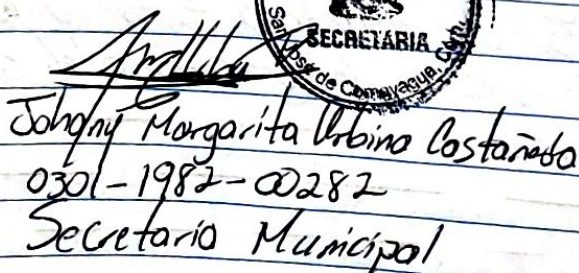 SECRETARIA
San José de Comayagua, Com.
Johany Margarita Urbina Castañeda
0301-1982-00282
Secretario Municipal